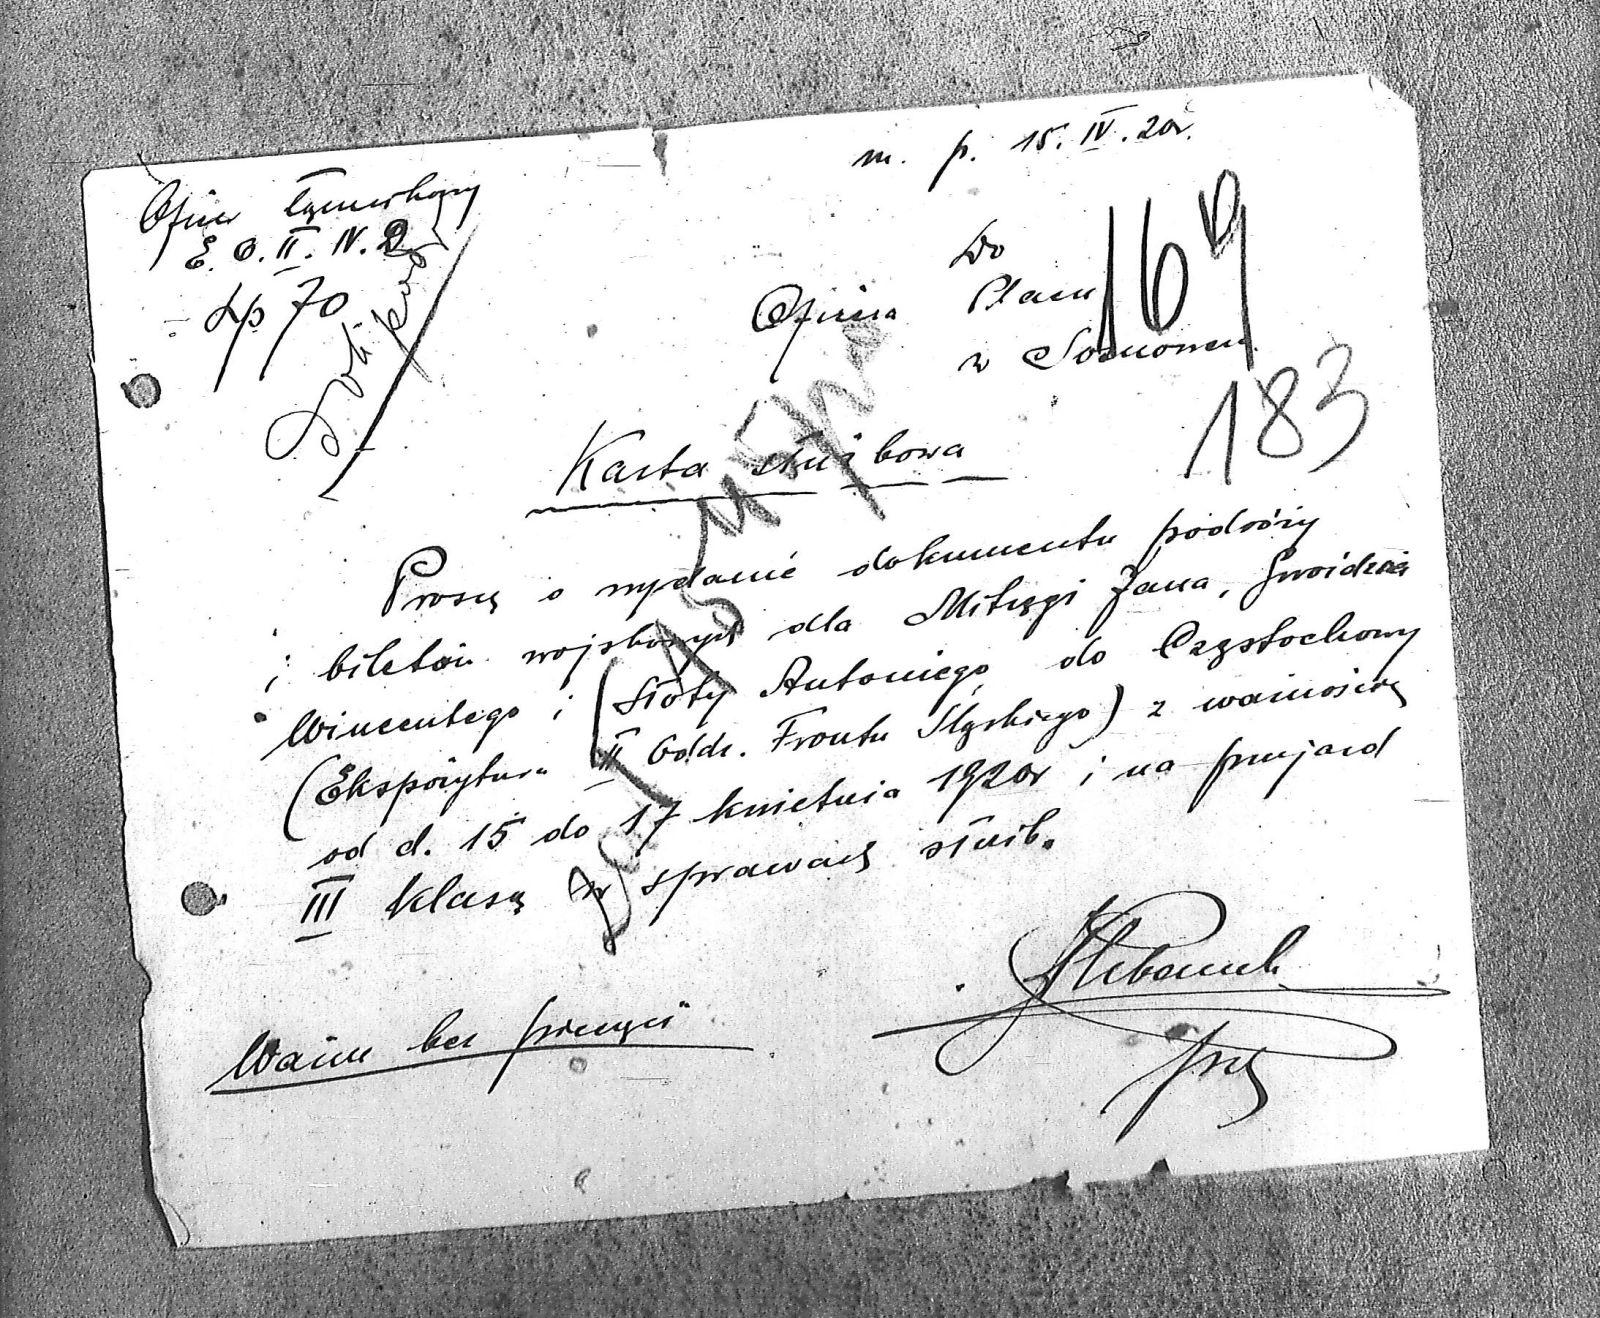 m. p. 15. IV. 20r.
Oficer Łącznikowy
E. O. II. IV. D
Lp 70
Do
Oficera Placu
w Sosnowcu
169
183
Karta służbowa
Proszę o wydanie dokumentu podróży
i biletów wojskowych dla Mitręgi Jana, Gwoździa
Wincentego i Słoty Antoniego do Częstochowy
(Ekspozytura II Oddz. Frontu Śląskiego) z ważnością
od d. 15 do 17 kwietnia 1920r i na przejazd
III klasą w sprawach służb.
Ważne bez pieczęci